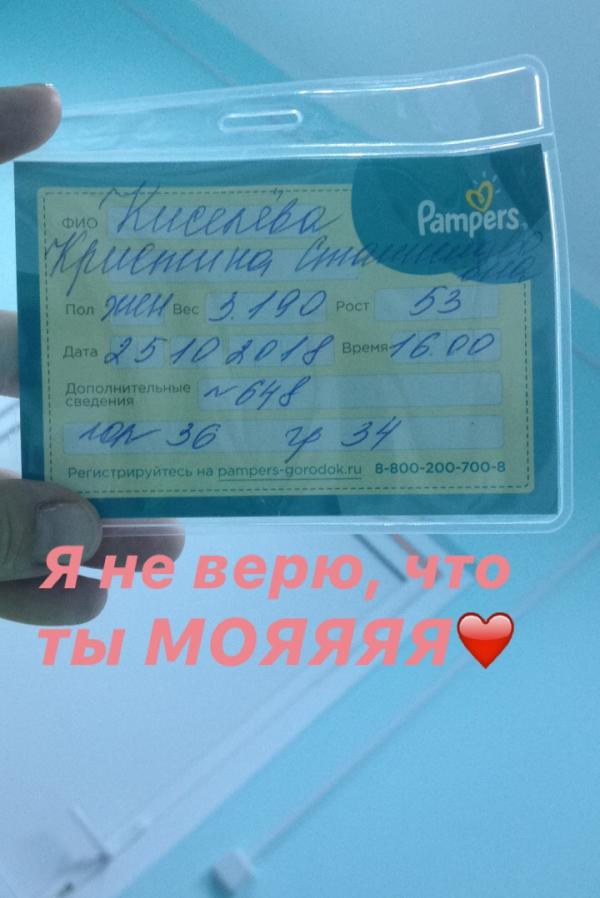 Pampers
ФИО Киселёва
Кристина
Пол жен Вес 3.190 Рост 53
Дата 25 10 2018 Время 16.00
Дополнительные
сведения ~648
гол 36 гр 34
Регистрируйтесь на pampers-gorodok.ru 8-800-200-700-8
Я не верю, что
ты МОЯЯЯЯ❤️